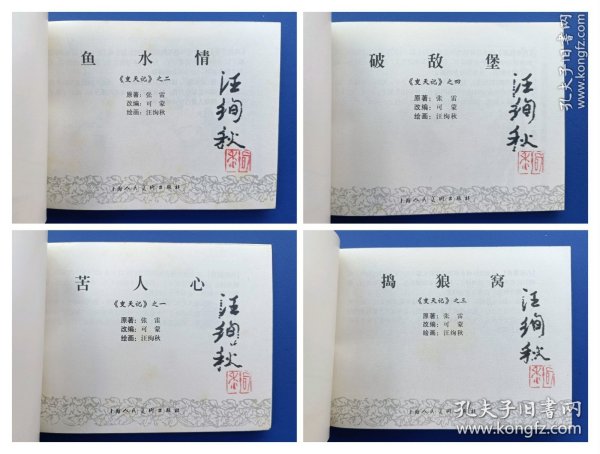 鱼水情
《变天记》之二
原著：张雷
改编：可蒙
绘画：汪绚秋
汪绚秋
上海人民美术出版社
破敌堡
《变天记》之四
原著：张雷
改编：可蒙
绘画：汪绚秋
汪绚秋
上海人民美术出版社
苦人心
《变天记》之一
原著：张雷
改编：可蒙
绘画：汪绚秋
汪绚秋
上海人民美术出版社
捣狼窝
《变天记》之三
原著：张雷
改编：可蒙
绘画：汪绚秋
汪绚秋
上海人民美术出版社
孔夫子旧书网
www.kongfz.com
孔夫子旧书网
www.kongfz.com